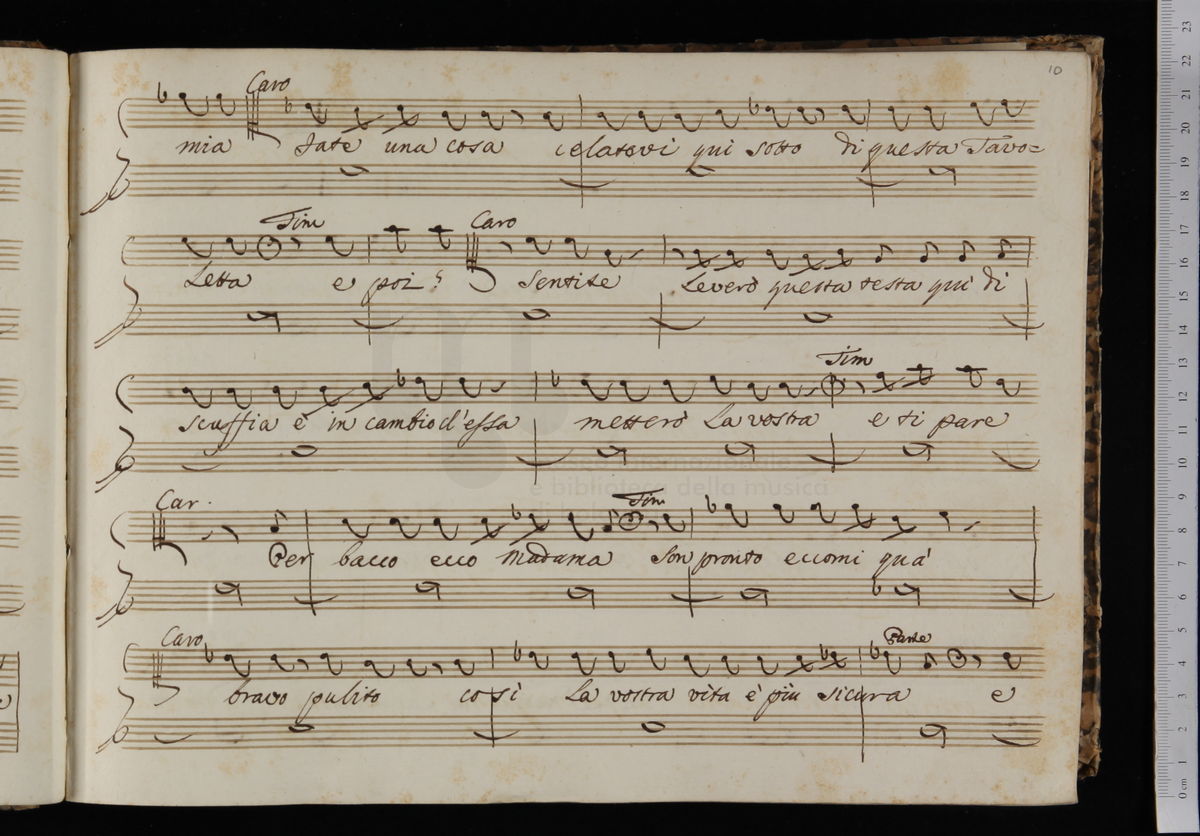 10
Caro
mia fate una cosa celatevi qui sotto di questa Tavo=
Tim Caro
Letta e poi? Sentite Leverò questa testa qui di
Tim
scuffia è in cambio d'essa metterò La vostra e ti pare
Car. Tim
Per bacco ecco Madama Son pronto eccomi quà
Caro Parte
bravo pulito così La vostra vita è più sicura e
e biblioteca della musica
23
22
21
20
19
18
17
16
15
14
13
12
11
10
9
8
7
6
5
4
3
2
1
0 cm